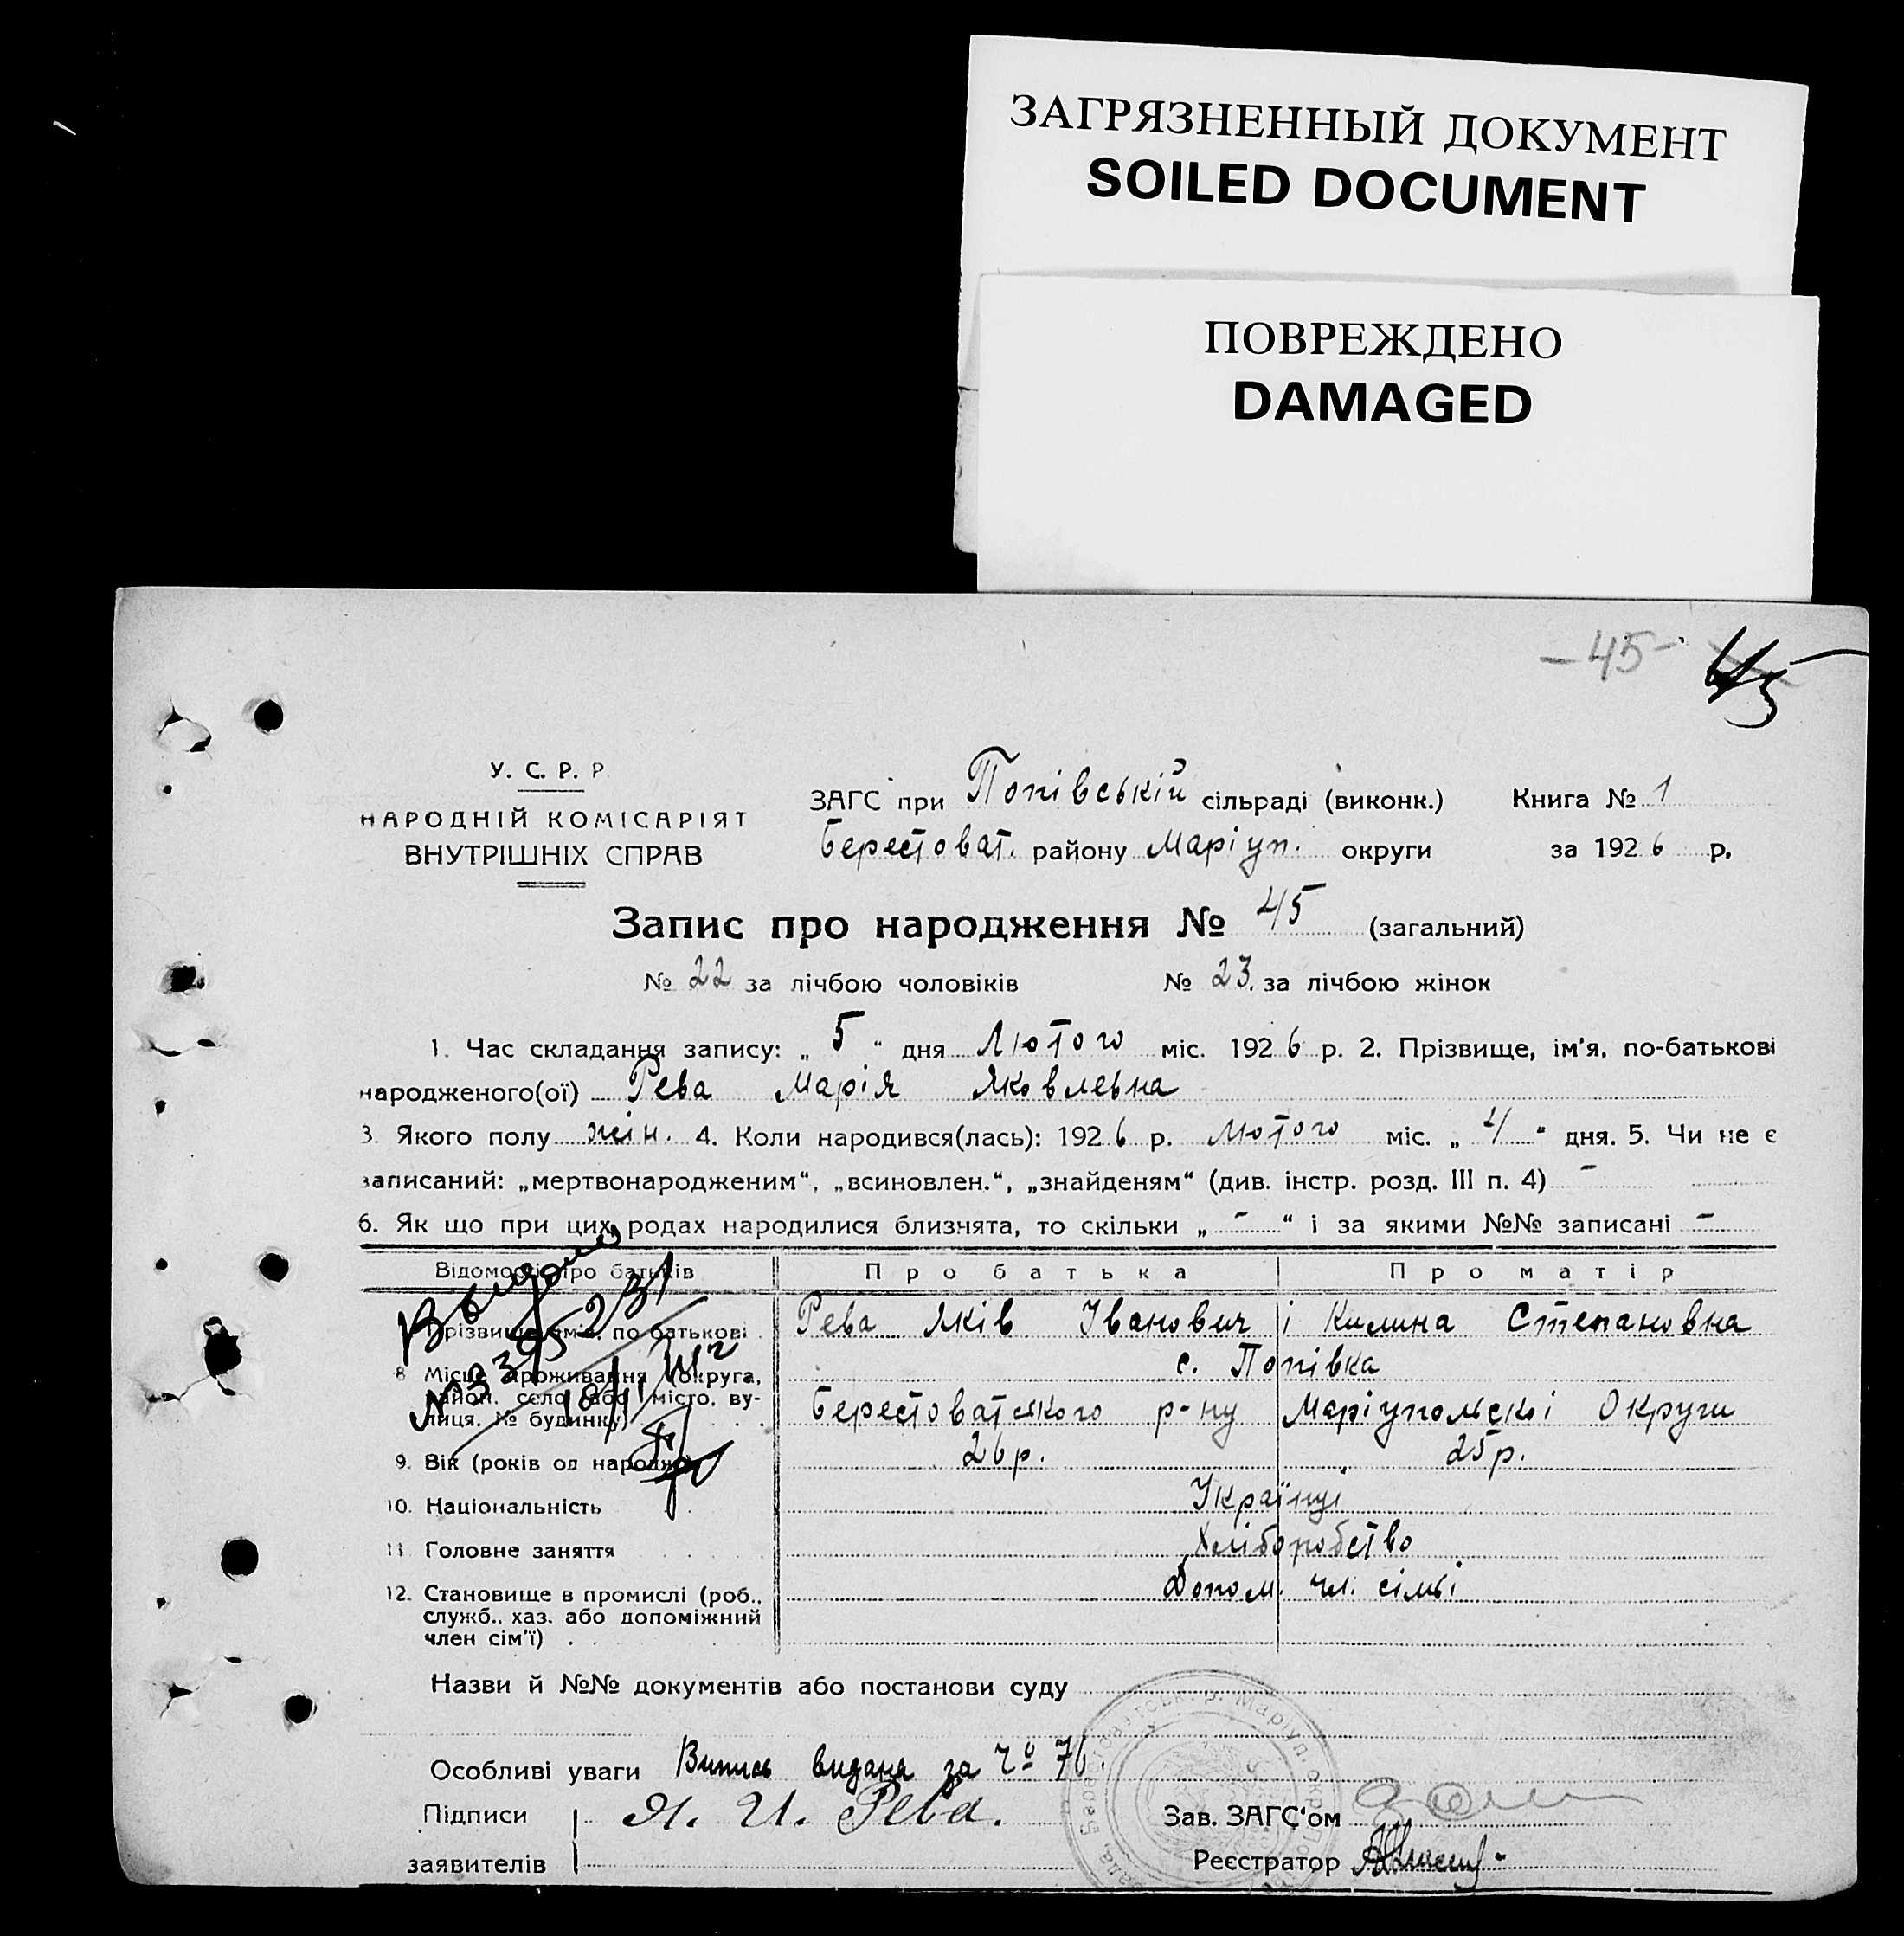 ЗАГРЯЗНЕННЫЙ ДОКУМЕНТ
SOILED DOCUMENT
ПОВРЕЖДЕНО
DAMAGED
– 45 – 45
У. С. Р. Р
НАРОДНІЙ КОМІСАРІЯТ
ВНУТРІШНІХ СПРАВ
ЗАГС при Попівській сільраді (виконк.) Книга № 1
Берестоват. району Маріуп. округи за 1926 р.
Запис про народження № 45 (загальний)
№ 22 за лічбою чоловіків № 23. за лічбою жінок
1. Час складання запису: „ 5 “ дня Лютого міс. 1926 р. 2. Прізвище, ім'я, по-батькові
народженого(ої) Рева Марія Яковлевна
3. Якого полу жін. 4. Коли народився(лась): 1926 р. Лютого міс. „ 4 “ дня. 5. Чи не є
записаний: „мертвонародженим“, „всиновлен.“, „знайденям“ (див. інстр. розд. III п. 4) –
6. Як що при цих родах народилися близнята, то скільки „ – “ і за якими №№ записані –
Відомості про батьків Про батька Про матір
Прізвище, імя, по батькові Рева Яків Іванович і Килина Степановна
8 Місце проживання (округа, с. Попівка
район, село або місто, ву- Берестоватського р-ну Маріупольскої Округи
лиця, № будинку)
9. Вік (років од народж.) 26 р. 25 р.
10. Національність Українці
11 Головне заняття Хліборобство
12. Становище в промислі (роб., Допом. чл. сімьі
служб., хаз. або допоміжний
член сім'ї)
Видано
Назви й №№ документів або постанови суду
Особливі уваги Випись видана за № 76
Підписи Я. И. Рева. Зав. ЗАГС'ом
заявителів Реєстратор